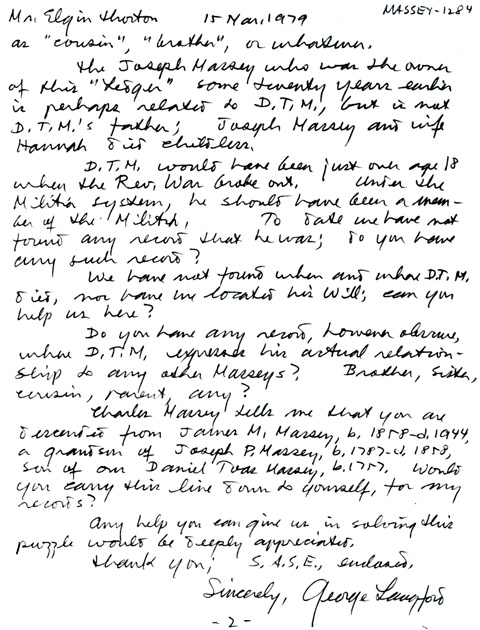 MASSEY-1284
Mr. Elgin Horton 15 Mar, 1979
as "cousin", "brother", or whatever.
The Joseph Massey who was the owner
of this "Ledger" some twenty years earlier
is perhaps related to D.T.M., but is not
D.T.M.'s father; Joseph Massey and wife
Hannah died childless.
D.T.M. would have been just over age 18
when the Rev. War broke out. Under the
Militia system, he should have been a mem-
ber of the Militia. To date we have not
found any record that he was; do you have
any such record?
We have not found when and where D.T.M.
died, nor have we located his Will; can you
help us here?
Do you have any record, however obscure,
where D.T.M. expresses his actual relation-
ship to any other Masseys? Brother, Sister,
cousin, parent, any?
Charles Massey tells me that you are
descended from James M. Massey, b. 1858-d. 1944,
a grandson of Joseph P. Massey, b. 1787-d. 1858,
son of our Daniel Massey, b. 1757. Would
you carry this line down to yourself, for my
records?
Any help you can give us in solving this
puzzle would be deeply appreciated.
Thank you; S.A.S.E., enclosed.
Sincerely, George Langford
-2-